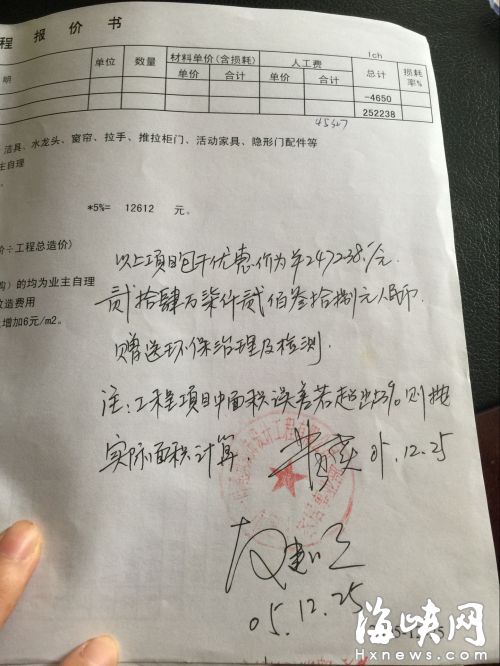 程 报 价 书
明 单位 数量 材料单价(含损耗) 人工费 lch 总计 损耗率%
单价 合计 单价 合计
-4650
252238
洁具、水龙头、窗帘、拉手、推拉柜门、活动家具、隐形门配件等
主自理
*5%= 12612 元。
价÷工程总造价）
以上项目包干优惠价为￥247238.-/元.
购）的均为业主自理
贰拾肆万柒仟贰佰叁拾捌元人民币.
改造费用
增加6元/m2。
赠送环保治理及检测.
注：工程项目中面积误差若超出3%则按
实际面积计算.
05.12.25
05.12.25
海峡网
Hxnews.com